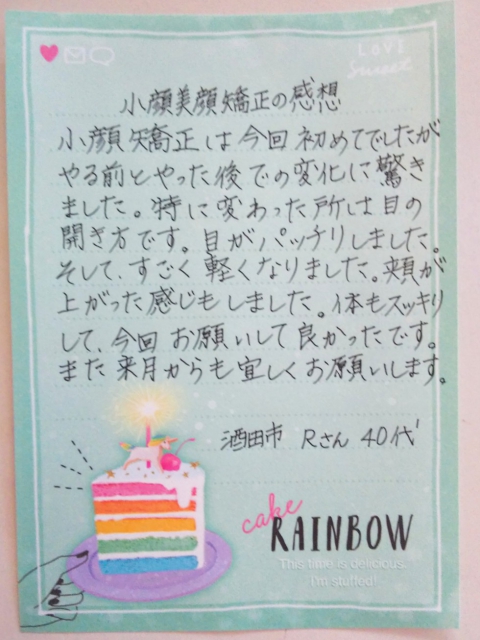 LOVE
Sweet
小顔美顔矯正の感想
小顔矯正は今回初めてでしたが
やる前とやった後での変化に驚き
ました。特に変わった所は目の
開き方です。目がパッチリしました。
そして、すごく軽くなりました。頬が
上がった感じもしました。体もスッキリ
して、今回お願いして良かったです。
また来月からも宜しくお願いします。
酒田市 Rさん 40代
cake
RAINBOW
This time is delicious.
I'm stuffed!